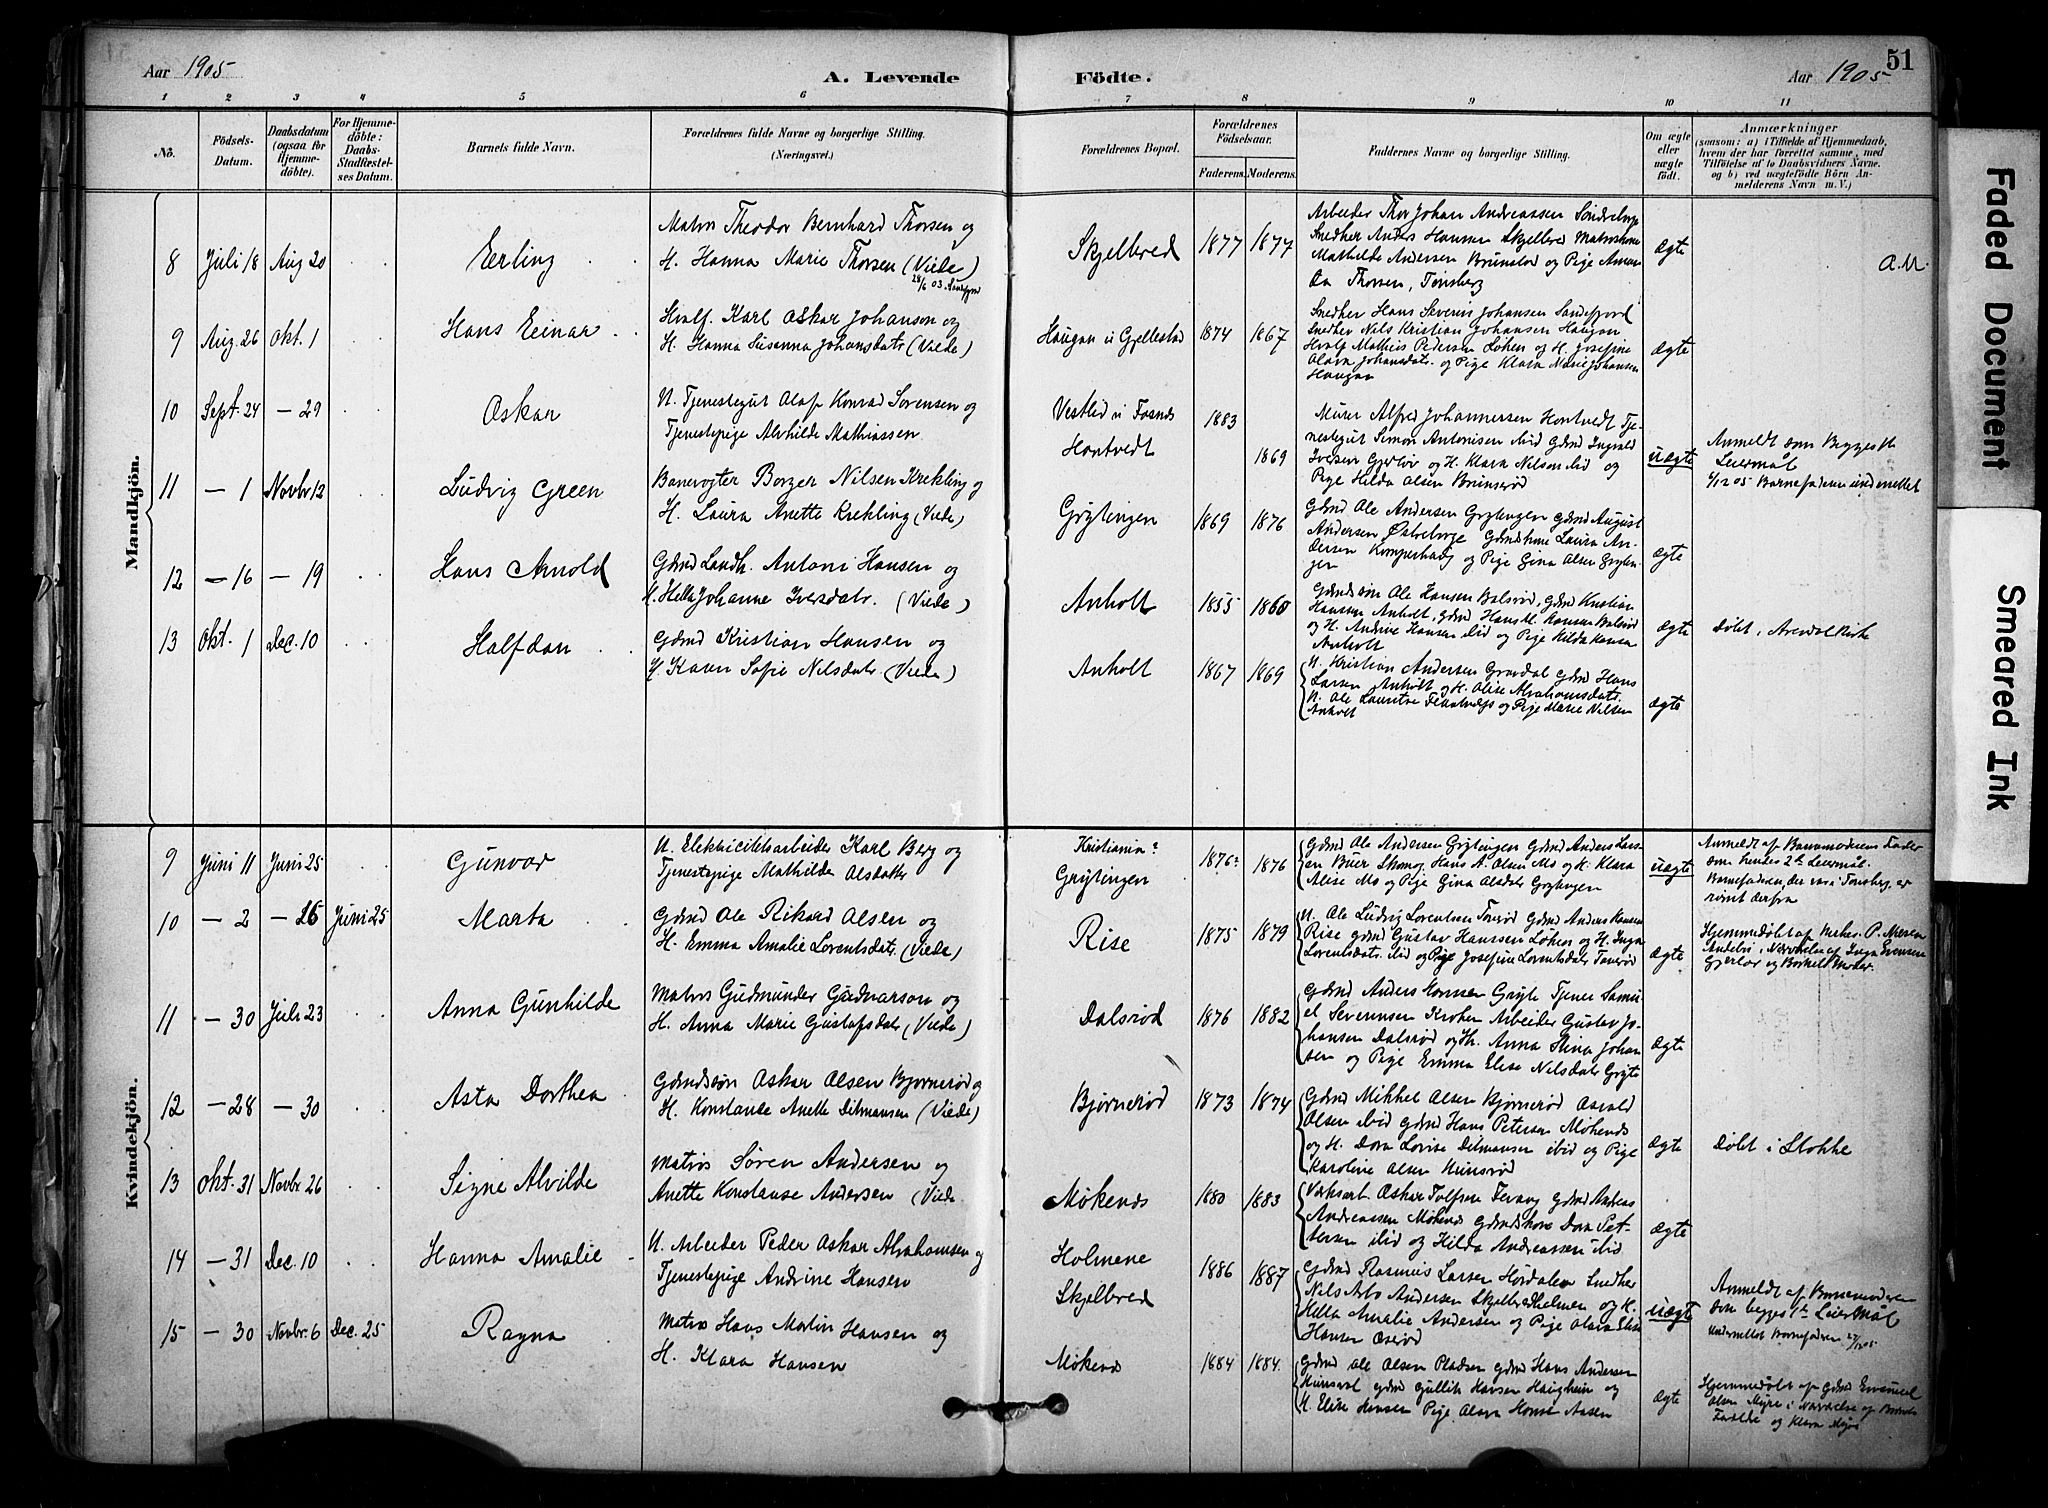 Aar 1905
A. Levende
Födte.
Aar 1905
51
1 2 3 4 5 6 7 8 9 10 11
No.
Födsels-
Datum.
Daabsdatum
(ogsaa for
Hjemme-
döbte).
For Hjemme-
döbte:
Daabs-
Stadfæstel-
ses Datum.
Barnets fulde Navn.
Forældrenes fulde Navne og borgerlige Stilling.
(Næringsvei.)
Forældrenes Bopæl.
Forældrenes
Födselsaar.
Faderens.
Moderens.
Faddernes Navne og borgerlige Stilling.
Om ægte
eller
uægte
födt.
Anmærkninger
(saasom: a) i Tilfælde af Hjemmedaab,
hvem der har forrettet samme, med
Tilföielse af to Daabsvidners Navne.
og b) ved uægtefödte Börn An-
melderens Navn m. V.)
Mandkjön.
8 Juli 18 Aug 20 Erling
Matros Theodor Bernhard Thorsen og
H. Hanna Marie Thorsen (Viede)
28/6 03. Sandefjord
Skjelbred 1877 1877
Arbeider Thor Johan Andreassen
Snedker Anders Hansen Skjelbred
Mathilde Andersen Brunstad og Pige
Thorsen, Tønsberg
ægte
A.M.
9 Aug. 26 Okt. 1 Hans Einar
Hvalf. Karl Oskar Johanson og
H. Hanna Susanna Johansdatr (Viede)
Haugan u Gjellestad 1874 1867
Snedker Hans Severin Johansen Sandefjord
Snedker Nils Kristian Johansen Haugan
Hvalf Mathias Pedersen Løken og H. Josefine
Olava Johansdatr. og Pige Klara Marie Johansen
Haugan
ægte
10 Sept. 24 — 29 Oskar
U. Tjenestegut Olaf Konrad Sørensen og
Tjenestepige Alvhilde Mathiassen
Vestlid u Fosnes
Hontvedt
1883
1869
Murer Alfred Johannessen Hontvedt Tje-
nestegut Simon Antonisen ibid Gdmd Ingvald
Iversen Gjerløv og H. Klara Nilsen ibid og
Pige Hilda Olsen Brunserød
uægte
Anmeldt som Begges 1te
Leiermål
Barnefaderen underrettet
11 — 1 Novbr 12 Ludvig Green
Banevogter Borger Nilsen Krekling og
H. Laura Anette Krekling (Viede)
Grytingen 1869 1876
Gdmd Ole Andersen Grytingen Gdmd August
Andersen Østreborge Gdmdkone Laura An-
dersen Komperhaug og Pige Gina Olsen Grytin-
gen
ægte
12 — 16 — 19 Hans Arnold
Gdmd Landh. Antoni Hansen og
H. Hella Johanne Iversdatr. (Viede)
Anholt 1855 1860
Gdmdssøn Ole Hansen Dalsrød, Gdmd Kristian
Hanssen Anholt, Gdmd Hans M. Hansen Dalsrød
og H. Andrine Hansen ibid og Pige Hilda Hansen
Anholt
ægte
Døbt i Arendal Kirke
13 Okt. 1 Dec. 10 Halfdan
Gdmd Kristian Hansen og
H. Karen Sofie Nilsdatr (Viede)
Anholt 1867 1869
U. Kristian Andersen Gravdal Gdmd Hans
Larsen Anholt og H. Elise Abrahamsdatr.
U. Ole Lauritse og Pige Marie Nilsen
Anholt
ægte
Kvindekjön.
9 Juni 11 Juni 25 Gunvor
U. Elektricitetsarbeider Karl Berg og
Tjenestepige Mathilde Olsdatter
Kristiania?
Grytingen
1876? 1876
Gdmd Ole Andersen Grytingen Gdmd Anders Lars-
en Buer Skomg Hans A. Olsen Mo og H. Klara
Alise Mo og Pige Gina Olsdatr Grytingen
uægte
Anmeldt af Barnemoderens Fader
som hendes 2det Leiermål.
Barnefaderen, der var i Tønsberg, er
rømt derfra
10 — 2 — 25 Juni 25 Marta
Gdmd Ole Rikard Olsen og
H. Emma Amalie Lorentsdatr. (Viede)
Rise 1875 1879
U. Ole Ludvig Lorentsen Taverød Gdmd Anders Hansen
Rise Gdmd Gustav Hanssen Løken og H. Inga
Lorentsdatr. ibid og Pige Josefine Lorentsdatr Taverød
ægte
Hjemmedøbt af
Andebu i Nærværelse af Inga Svensen
Gjerløv og Barnets Moder.
11 — 30 Juli 23 Anna Gunhilde
Matros Gudmunder Gudnarson og
H. Anna Marie Gustafsdatr (Viede)
Dalsrød 1876 1882
Gdmd Anders Hansen Gryte Tjener Samu-
el Severinsen Kroken Arbeider Gustav Jo-
hansen Dalsrød og H. Anna Stina Johan
sen og Pige Emma Elise Nilsdatr Gryte
ægte
12 — 28 — 30 Asta Dorthea
Gdmdssøn Oskar Olsen Bjørnerød og
H. Konstanse Anette Ditmansen (Viede)
Bjørnerød 1873 1874
Gdmd Mikkel Olsen Bjørnerød Osvald
Olsen ibid Gdmd Hans Petersen Møkenes
og H. Dora Lovise Ditmansen ibid og Pige
Karoline Olsen Hunsrød
ægte
Døbt i Stokke
13 Okt. 31 Novbr 26 Signe Alvilde
Matros Søren Andersen og
Anette Konstanse Andersen (Viede
Møkenes 1880 1883
Vaksarb. Oskar Tolfsen Gdmd Andreas
Andreassen Møkenes Gdmdskone Dora Pet-
tersen ibid og Hilda Andreassen ibid
ægte
14 — 31 Dec. 10 Hanna Amalie
U. Arbeider Peder Oskar Abrahamsen og
Tjenestepige Andrine Hansen
Holmene
Skjelbred
1886 1887
Gdmd Rasmus Larsen Hørdalen Snedker
Nils Arbo Andersen Skjelbredholmen og H.
Hella Amalie Andersen og Pige Olava Elise
Hansen Oserød
uægte
Anmeldt af Barnemoderen
som begges 1te Leiermål
Underrettet Barnefaderen 27/12 05
15 — 30 Novbr. 6 Dec. 25 Ragna
Matros Hans Martin Hansen og
H. Klara Hansen
Møkenes 1884 1884
Gdmd Ole Olsen Pladsen Gdmd Hans Andersen
Hunsrød Gdmd Gullik Hansen Haugheim og
H. Elise Hansen Pige Olava Hanse Aasen
ægte
Hjemmedøbt af Gdmd Emanuel
Olsen Myre i Nærværelse af Barnets
Forældre og Klara Myre
Faded Document
Smeared Ink